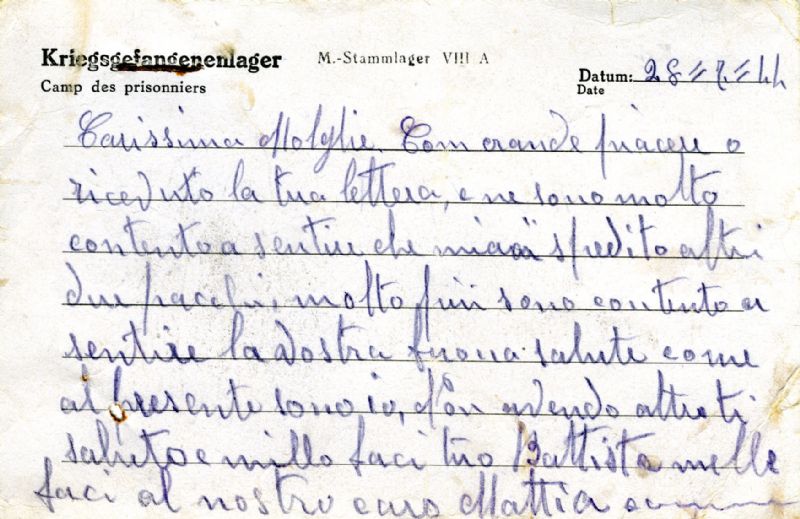 Kriegsgefangenenlager M.-Stammlager VIII A
Camp des prisonniers
Datum: 28=7=44
Date
Carissima Molglie. Com crande piacere o
riceduto la tua lettera, e ne sono molto
contento a sentire che miaäi spedito altri
due pacchi, molto più sono contento a
sentire la vostra buona salute come
al presente sono io, Non avendo altro ti
saluto e millo baci tuo Battista melle
baci al nostro caro Mattia